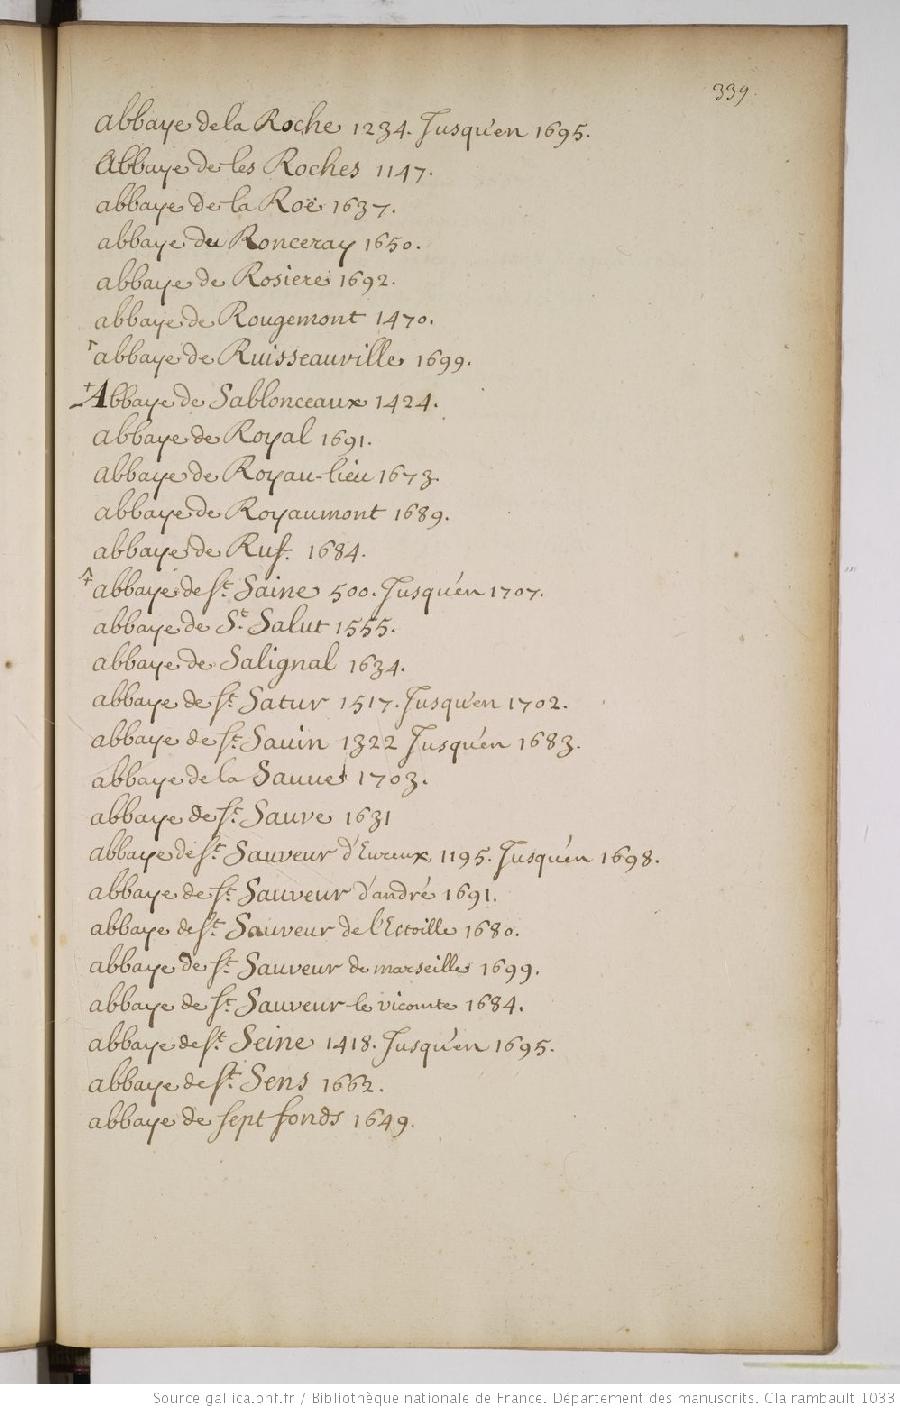 339.
abbaye de la Roche 1234. Jusqu'en 1695.
Abbaye de les Roches 1147.
abbaye de la Roë 1637.
abbaye du Ronceray 1650.
abbaye de Rosiere 1692.
abbaye de Rougemont 1470.
abbaye de Ruisseauville 1699.
+ Abbaye de Sablonceaux 1424.
abbaye de Royal 1691.
abbaye de Royau-lieu 1673.
abbaye de Royaumont 1689.
abbaye de Ruf. 1684.
abbaye de St. Saine 500. Jusqu'en 1707.
abbaye de St. Salut 1555.
abbaye de Salignal 1634.
abbaye de St. Satur 1517. Jusqu'en 1702.
abbaye de St. Sauin 1322 Jusqu'en 1683.
abbaye de la Sauue 1703.
abbaye de St. Sauve 1631
abbaye de St. Sauveur d'Eureux 1195. Jusqu'en 1698.
abbaye de St. Sauveur d'andré 1691.
abbaye de St. Sauveur de l'Estoille 1680.
abbaye de St. Sauveur de marseille 1699.
abbaye de St. Sauveur-le vicomte 1684.
abbaye de St. Seine 1418. Jusqu'en 1695.
abbaye de St. Sens 1662.
abbaye de sept fonds 1649.
Source gallica.bnf.fr / Bibliothèque nationale de France. Département des manuscrits. Clairambault 1033